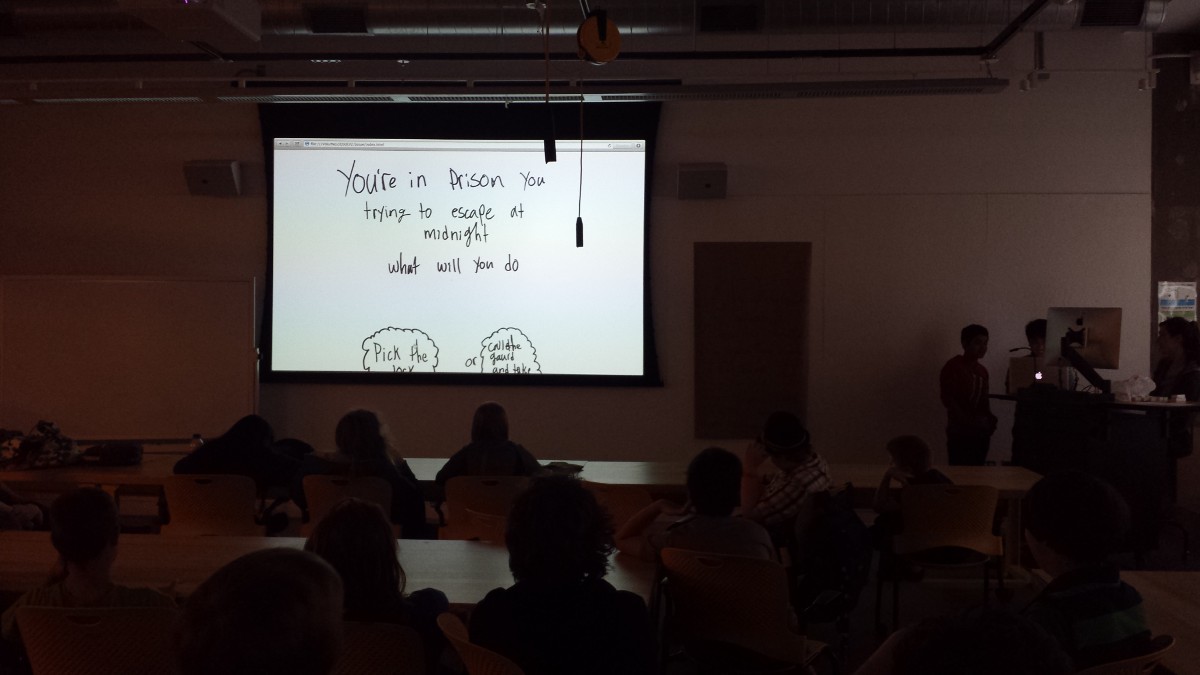 You're in Prison You
trying to escape at
midnight
what will you do
Pick the
lock
or
call the
gaurd
and take